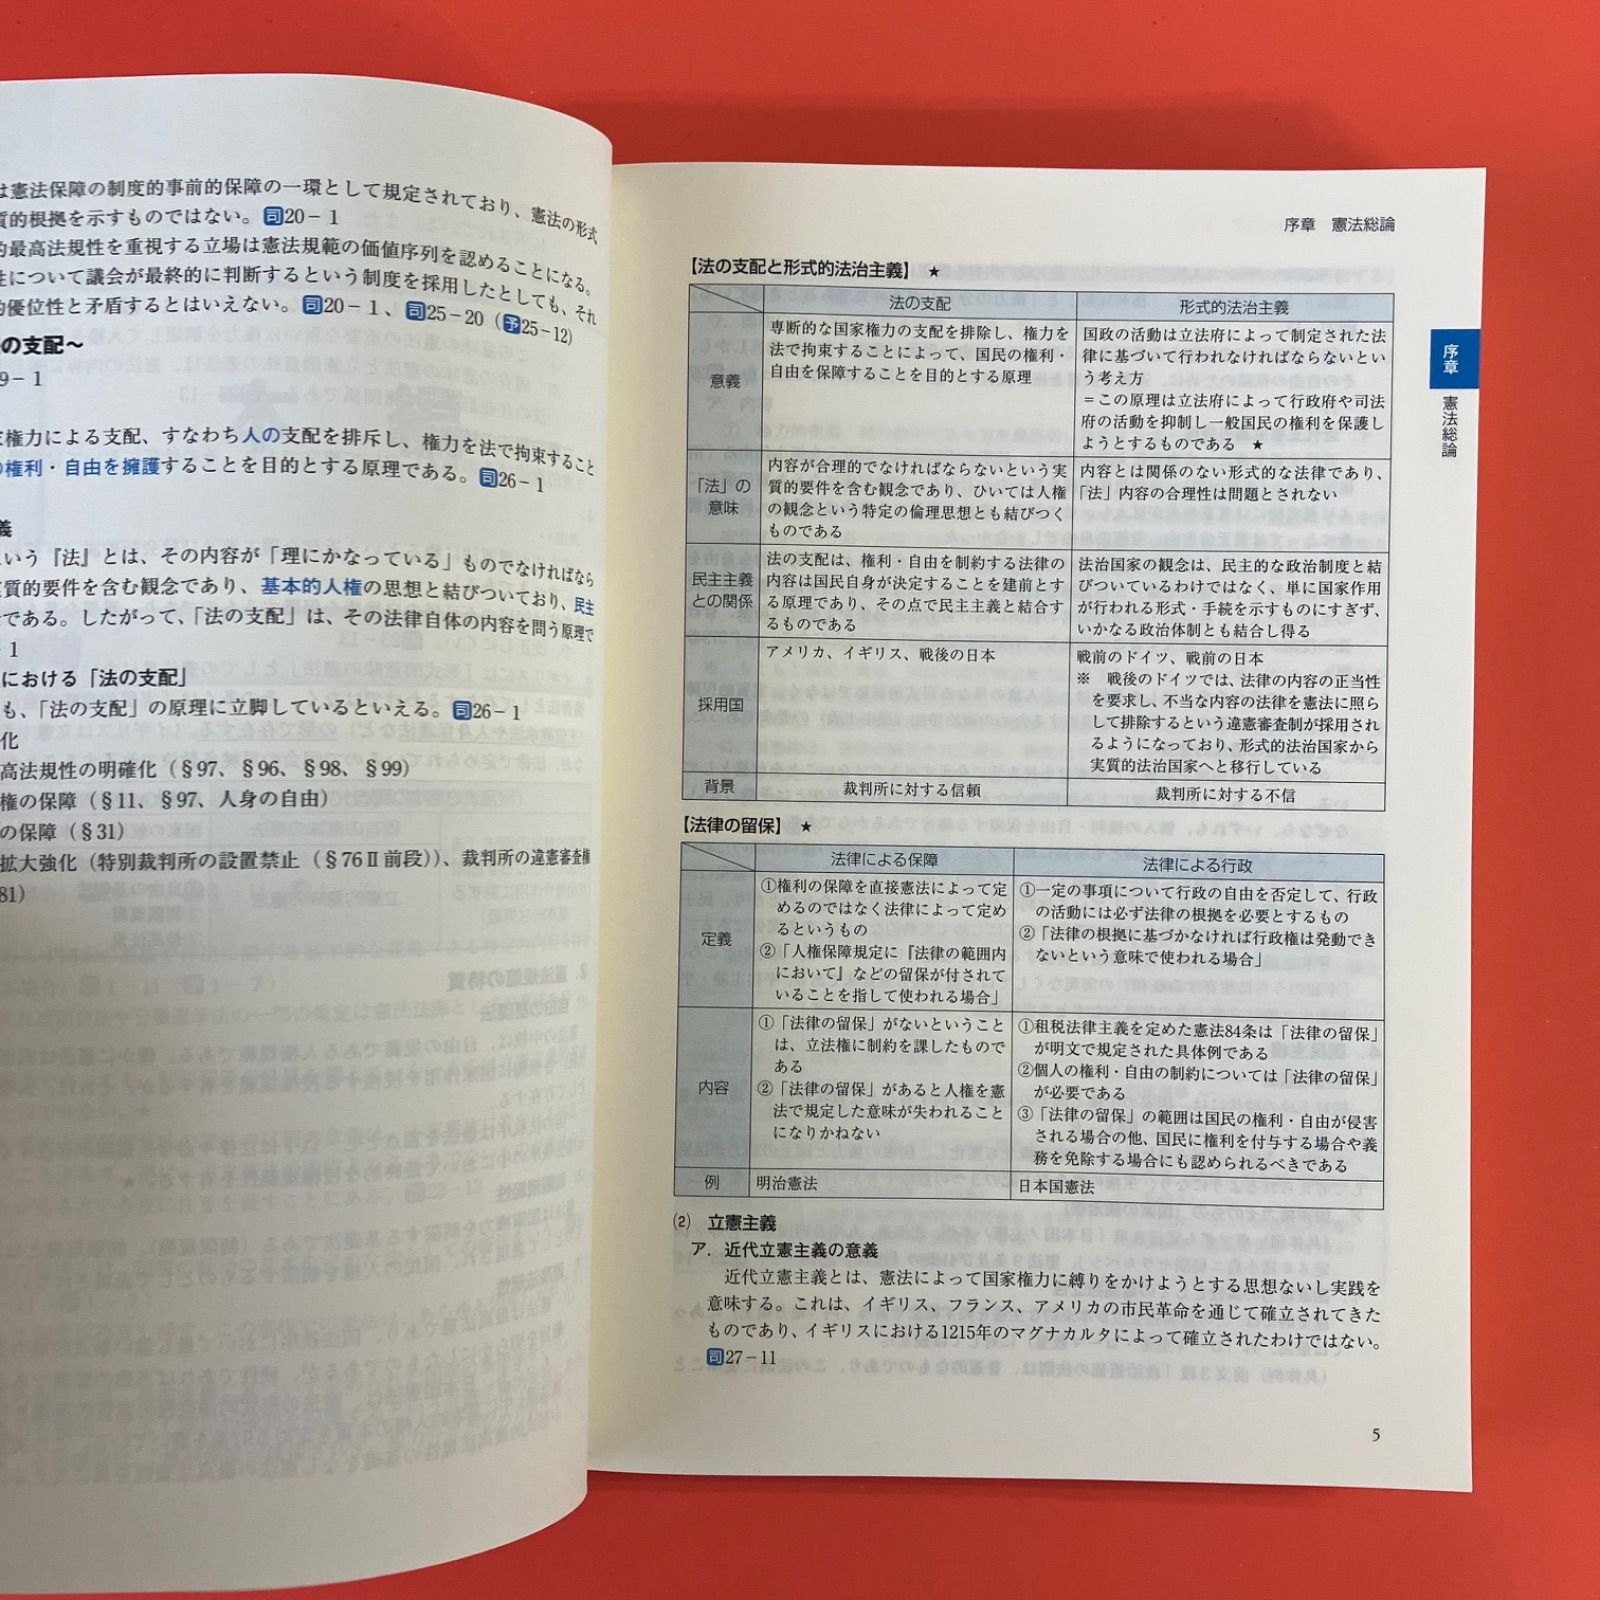 は憲法保障の制度的事前的保障の一環として規定されており、憲法の形式
質的根拠を示すものではない。司20－1
的最高法規性を重視する立場は憲法規範の価値序列を認めることになる。
性について議会が最終的に判断するという制度を採用したとしても、それ
的優位性と矛盾するとはいえない。司20－1、司25－20（予25－12）
の支配～
9－1
権力による支配、すなわち人の支配を排斥し、権力を法で拘束すること
権利・自由を擁護することを目的とする原理である。司26－1
義
いう『法』とは、その内容が「理にかなっている」ものでなければなら
質的要件を含む観念であり、基本的人権の思想と結びついており、民主
である。したがって、「法の支配」は、その法律自体の内容を問う原理で
－1
における「法の支配」
も、「法の支配」の原理に立脚しているといえる。司26－1
化
高法規性の明確化（§97、§96、§98、§99）
権の保障（§11、§97、人身の自由）
の保障（§31）
拡大強化（特別裁判所の設置禁止（§76Ⅱ前段））、裁判所の違憲審査権
81）
序章　憲法総論
【法の支配と形式的法治主義】　★
法の支配
形式的法治主義
意義
専断的な国家権力の支配を排除し、権力を
法で拘束することによって、国民の権利・
自由を保障することを目的とする原理
国政の活動は立法府によって制定された法
律に基づいて行われなければならないとい
う考え方
＝この原理は立法府によって行政府や司法
府の活動を抑制し一般国民の権利を保護し
ようとするものである　★
「法」の
意味
内容が合理的でなければならないという実
質的要件を含む観念であり、ひいては人権
の観念という特定の倫理思想とも結びつく
ものである
内容とは関係のない形式的な法律であり、
「法」内容の合理性は問題とされない
民主主義
との関係
法の支配は、権利・自由を制約する法律の
内容は国民自身が決定することを建前とす
る原理であり、その点で民主主義と結合す
るものである
法治国家の観念は、民主的な政治制度と結
びついているわけではなく、単に国家作用
が行われる形式・手続を示すものにすぎず、
いかなる政治体制とも結合し得る
採用国
アメリカ、イギリス、戦後の日本
戦前のドイツ、戦前の日本
※　戦後のドイツでは、法律の内容の正当性
を要求し、不当な内容の法律を憲法に照ら
して排除するという違憲審査制が採用され
るようになっており、形式的法治国家から
実質的法治国家へと移行している
背景
裁判所に対する信頼
裁判所に対する不信
【法律の留保】　★
法律による保障
法律による行政
定義
①権利の保障を直接憲法によって定
めるのではなく法律によって定め
るというもの
②「人権保障規定に『法律の範囲内
において』などの留保が付されて
いることを指して使われる場合」
①一定の事項について行政の自由を否定して、行政
の活動には必ず法律の根拠を必要とするもの
②「法律の根拠に基づかなければ行政権は発動でき
ないという意味で使われる場合」
内容
①「法律の留保」がないということ
は、立法権に制約を課したもので
ある
②「法律の留保」があると人権を憲
法で規定した意味が失われること
になりかねない
①租税法律主義を定めた憲法84条は「法律の留保」
が明文で規定された具体例である
②個人の権利・自由の制約については「法律の留保」
が必要である
③「法律の留保」の範囲は国民の権利・自由が侵害
される場合の他、国民に権利を付与する場合や義
務を免除する場合にも認められるべきである
例
明治憲法
日本国憲法
⑵　立憲主義
ア．近代立憲主義の意義
近代立憲主義とは、憲法によって国家権力に縛りをかけようとする思想ないし実践を
意味する。これは、イギリス、フランス、アメリカの市民革命を通じて確立されてきた
ものであり、イギリスにおける1215年のマグナカルタによって確立されたわけではない。
司27－11
5
序章
憲法総論